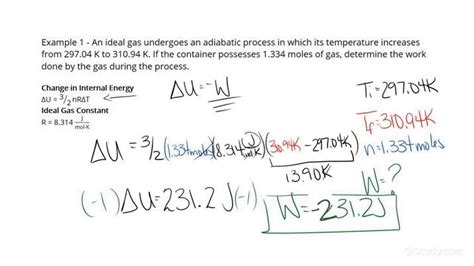 Example 1 - An ideal gas undergoes an adiabatic process in which its temperature increases
from 297.04 K to 310.94 K. If the container possesses 1.334 moles of gas, determine the work
done by the gas during the process.
Change in Internal Energy
ΔU = 3/2 nRΔT
Ideal Gas Constant
R = 8.314 J/mol·K
ΔU = -W
Ti = 297.04K
TF = 310.94K
n = 1.334 moles
W = ?
ΔU = 3/2 (1.334 moles)(8.314 J/mol·K)(310.94K - 297.04K)
13.90K
(-1) ΔU = 231.2 J (-1)
W = -231.2J
Study.com